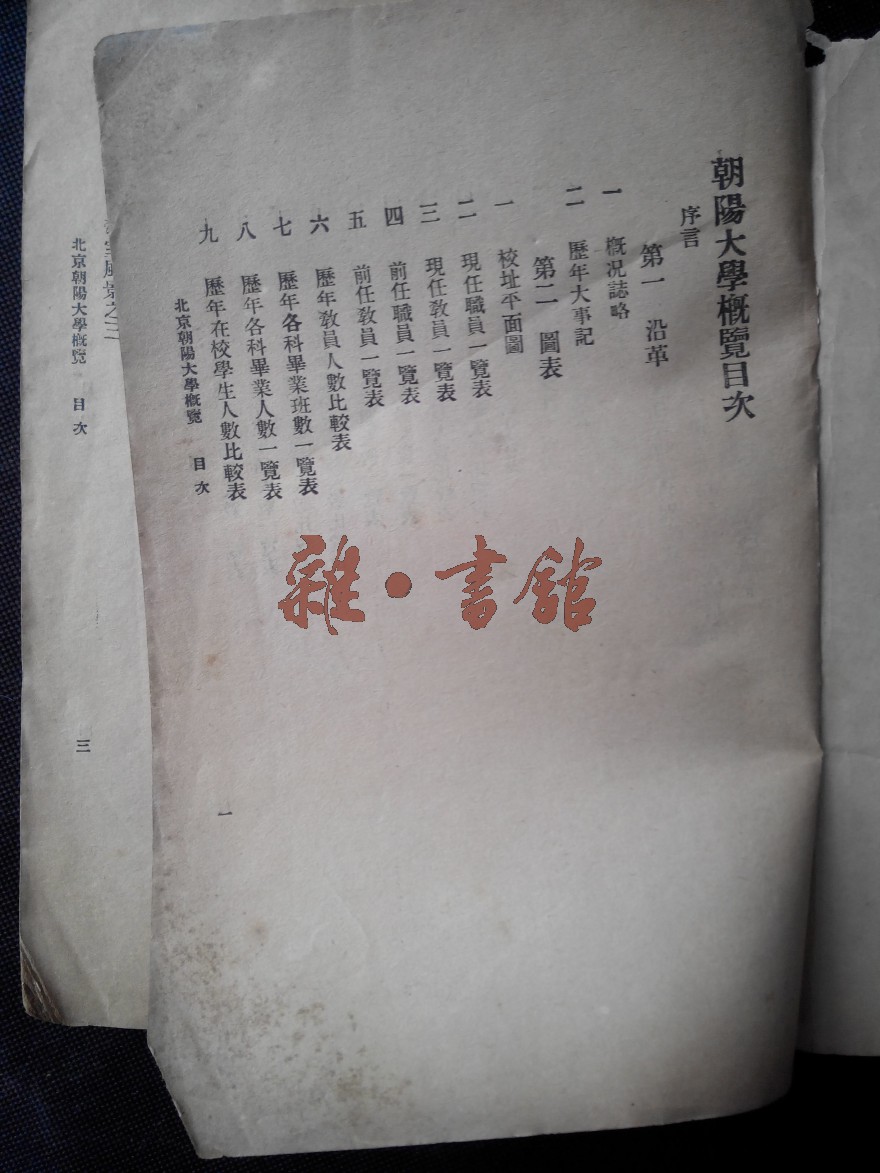 朝陽大學概覽目次
序言
第一 沿革
一 概況誌略
二 歷年大事記
第二 圖表
一 校址平面圖
二 現任職員一覽表
三 現任敎員一覽表
四 前任職員一覽表
五 前任敎員一覽表
六 歷年敎員人數比較表
七 歷年各科畢業班數一覽表
八 歷年各科畢業人數一覽表
九 歷年在校學生人數比較表
北京朝陽大學概覽 目次
一
風景之三
北京朝陽大學概覽 目次
三
雜·書館